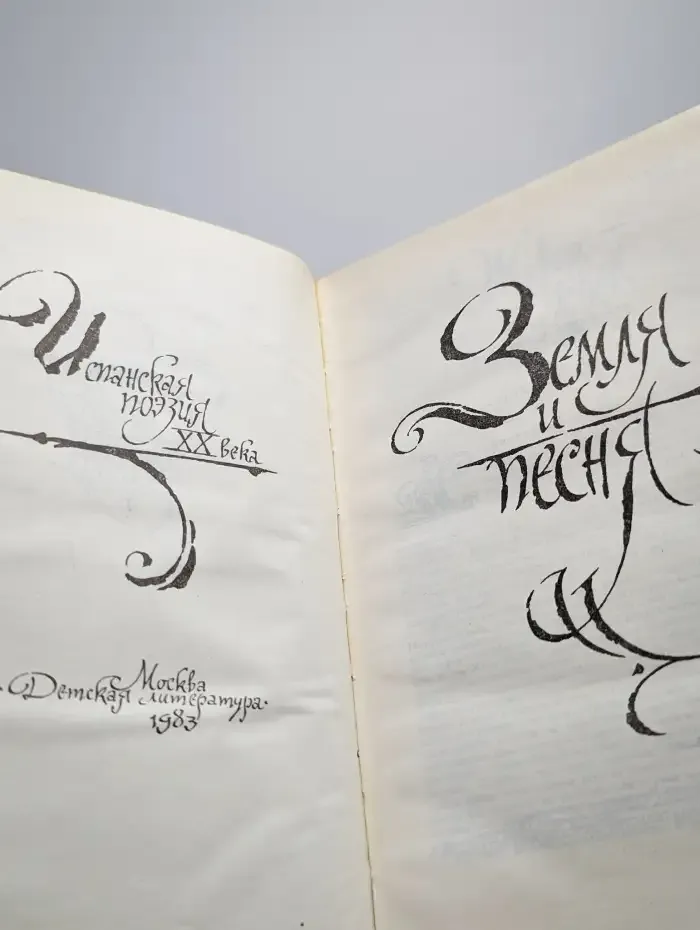 Испанская
поэзия
XX века
Москва
·Детская литература·
1983
Земля
и
песня